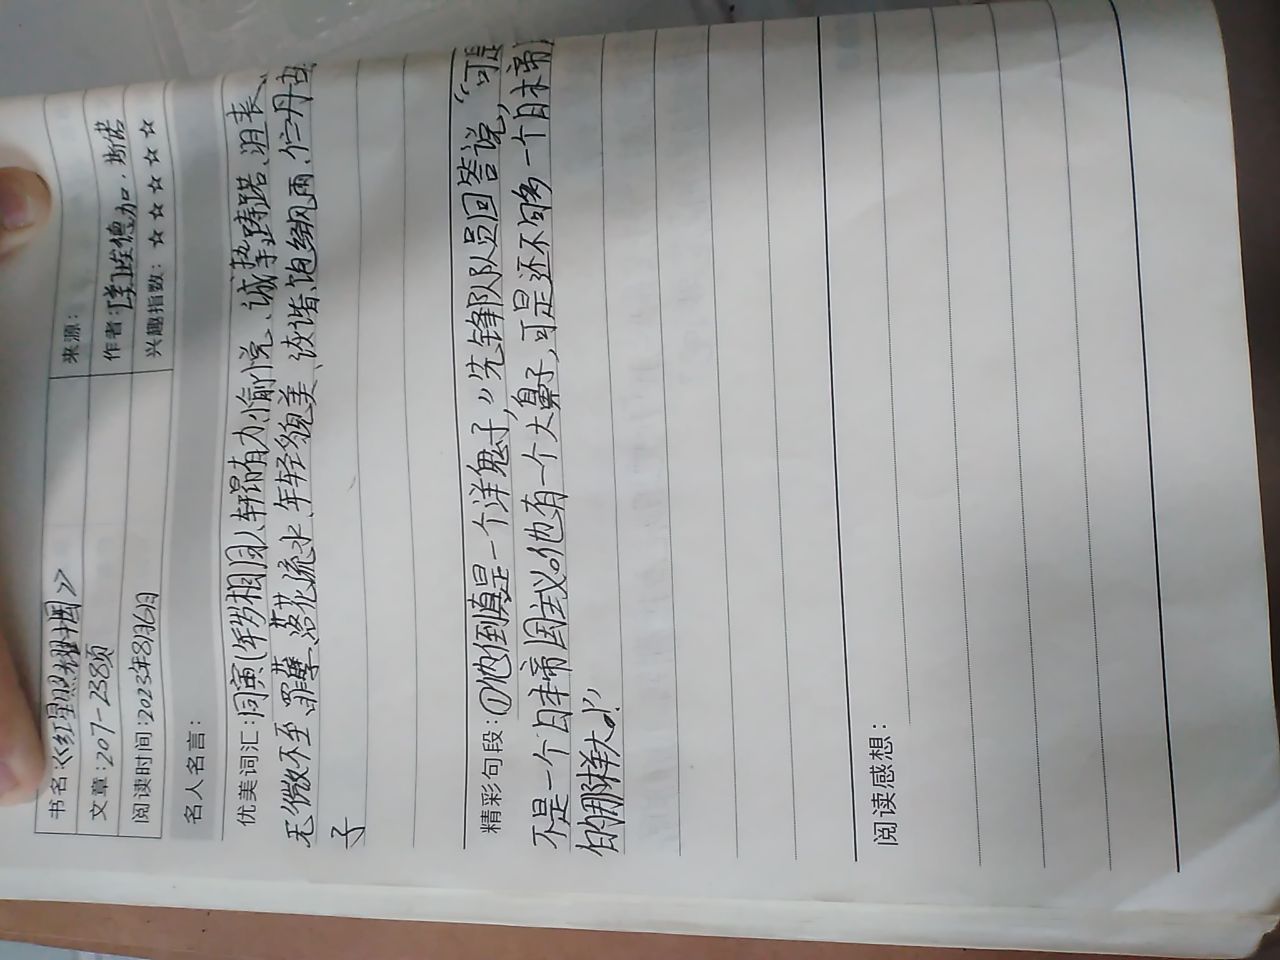 书名:《红星照耀中国》 来源:
文章:207-238页 作者:[美]埃德加·斯诺
阅读时间:2023年8月6日 兴趣指数:☆☆☆☆☆
名人名言:
优美词汇:同寅(年岁相同)、轩昂有力、愉悦、诚挚、踌躇、沮丧、
无微不至、罪孽、落花流水、年轻貌美、诙谐、饱经风雨、仁丹胡
子
精彩句段:①他倒真是一个洋鬼子,”先锋队队员回答说,“可是
不是一个日本帝国主义。他有一个大鼻子,可是还不够一个日本帝
的那样大!”
阅读感想: